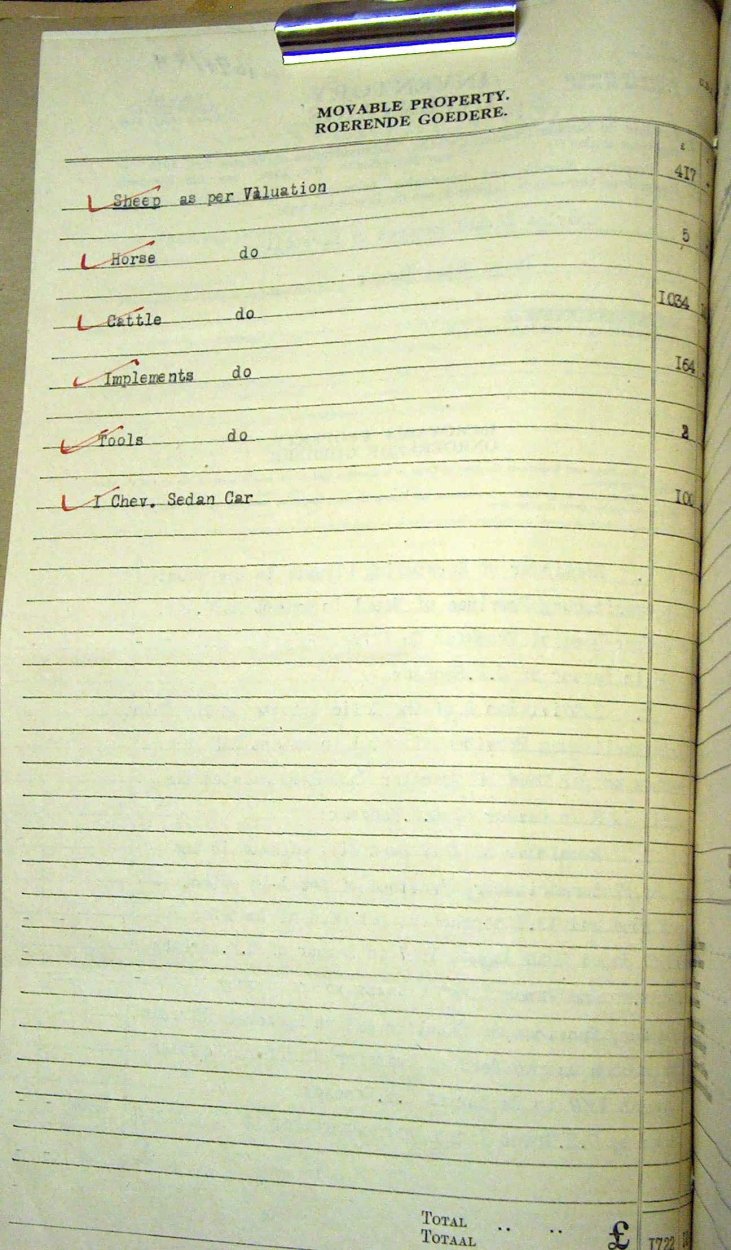 MOVABLE PROPERTY.
ROERENDE GOEDERE.
£
Sheep as per Valuation 417
Horse do 5
Cattle do 1034
Implements do 164
Tools do 2
I Chev. Sedan Car 100
TOTAL .. .. £
TOTAAL 1722